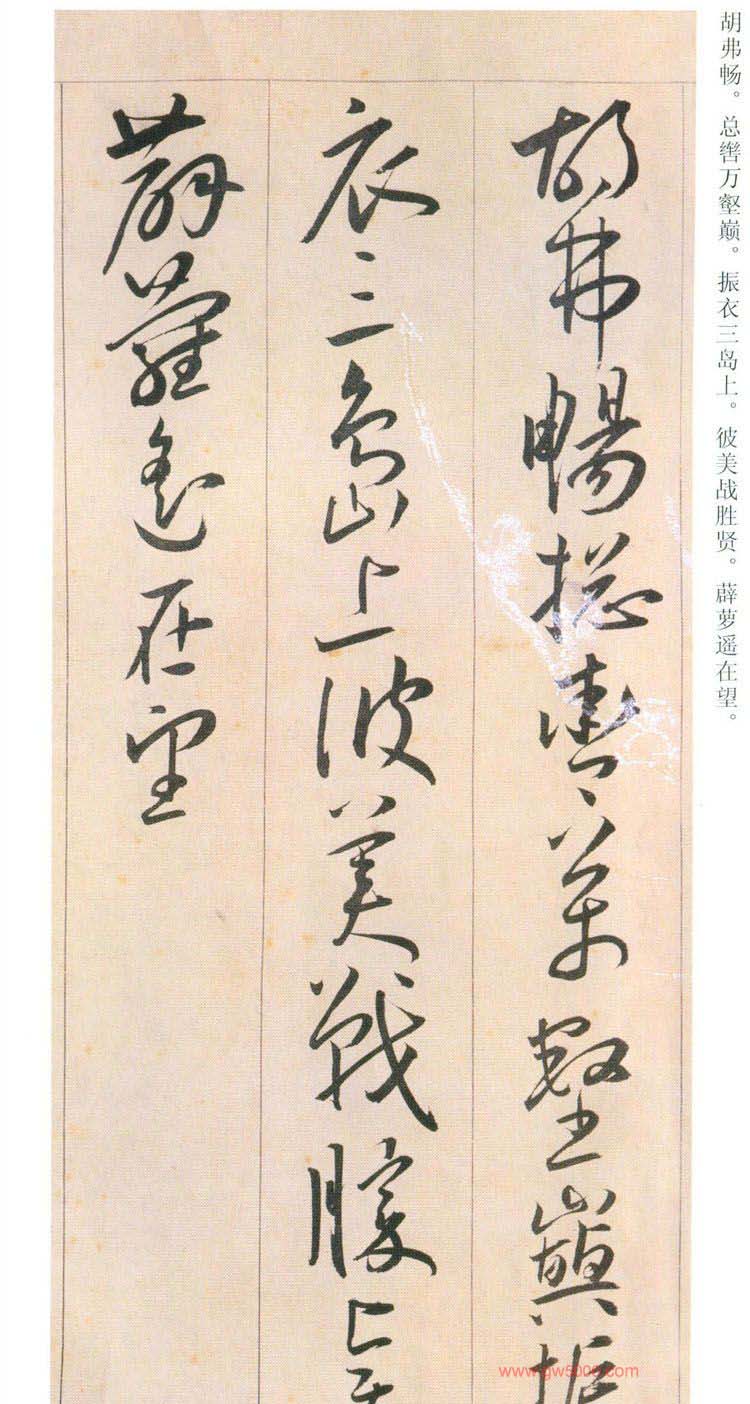 胡弗畅。总辔万壑巅。振衣三岛上。彼美战胜贤。薜萝遥在望。
胡弗暢揔轡万壑巔振
衣三島上彼美戰勝上
薜蘿遙在望
www.gw5000.com